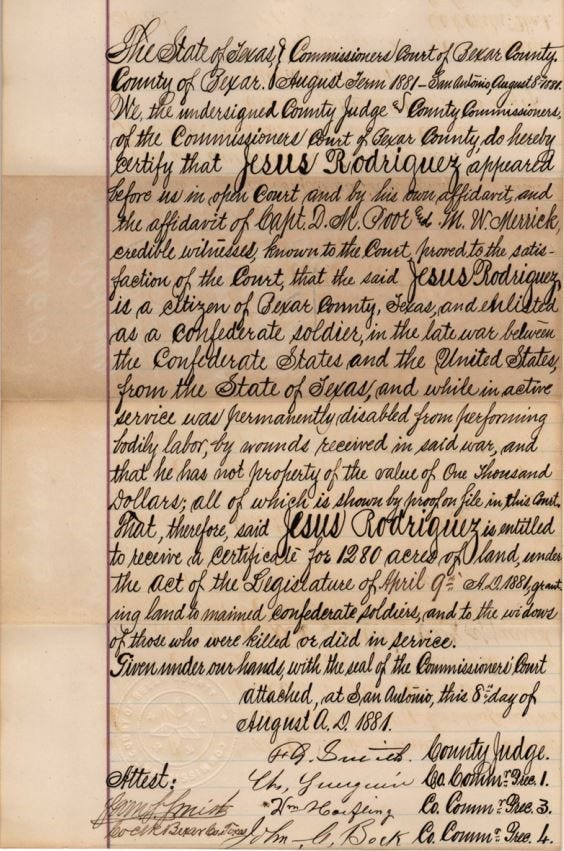 The State of Texas, } Commissioners' Court of Bexar County.
County of Bexar. } August Term 1881 - San Antonio, August 8th 1881.
We, the undersigned County Judge & County Commissioners,
of the Commissioners' Court of Bexar County, do hereby
certify that Jesus Rodriguez appeared
before us in open Court and by his own affidavit, and
the affidavit of Capt. D. M. Poor and M. W. Merrick,
credible witnesses, known to the Court, proved to the satis-
faction of the Court, that the said Jesus Rodriguez,
is a citizen of Bexar County, Texas, and enlisted
as a confederate soldier, in the late war between
the Confederate States and the United States,
from the State of Texas, and while in active
service was permanently disabled from performing
bodily labor, by wounds received in said war, and
that he has not property of the value of One Thousand
Dollars; all of which is shown by proof on file in this Court.
That, therefore, said Jesus Rodriguez is entitled
to receive a certificate for 1280 acres of land, under
the act of the Legislature of April 9th A.D. 1881, grant-
ing land to maimed confederate soldiers, and to the widows
of those who were killed or died in service.
Given under our hands, with the seal of the Commissioners' Court
attached, at San Antonio, this 8th day of
August A. D. 1881.
G. Smith. County Judge.
Attest: Ch, Co. Commr. Prec. 1.
Smith Wm Co. Commr. Prec. 3.
Co Clk Bexar Co. Texas John C. Bock Co. Commr. Prec. 4.